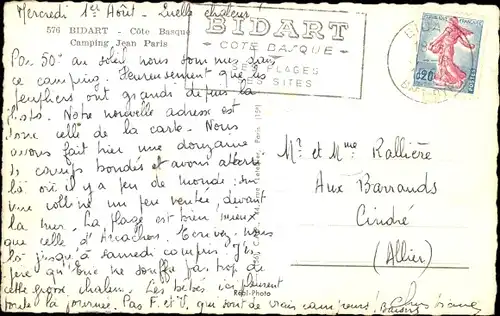 Mercredi 1er Août - Quelle chaleur!
576 BIDART - Côte Basque
Camping Jean Paris
BIDART
CÔTE BASQUE
SES PLAGES
SES SITES
0,20
POSTES
Par 50° au soleil nous sommes dans
ce camping. Heureusement que les
peupliers ont grandi depuis la
photo. Notre nouvelle adresse est
donc celle de la carte. Nous
avons fait hier une douzaine
de camps bondés et avons atterri
là où il y a peu de monde: sur
une colline un peu ventée, devant
la mer. La plage est mieux
que celle d'Arcachon. Écrivez-nous
là jusqu'à samedi compris. J'es-
père qu'Éric ne souffre pas trop de
cette grosse chaleur. Les bébés ici pleurent
toute la journée. Pas F. et V. qui sont de vrais campeurs! Baisers
Mr et Mme Rallière
Aux Barrands
Cindré
(Allier)
Réal-Photo